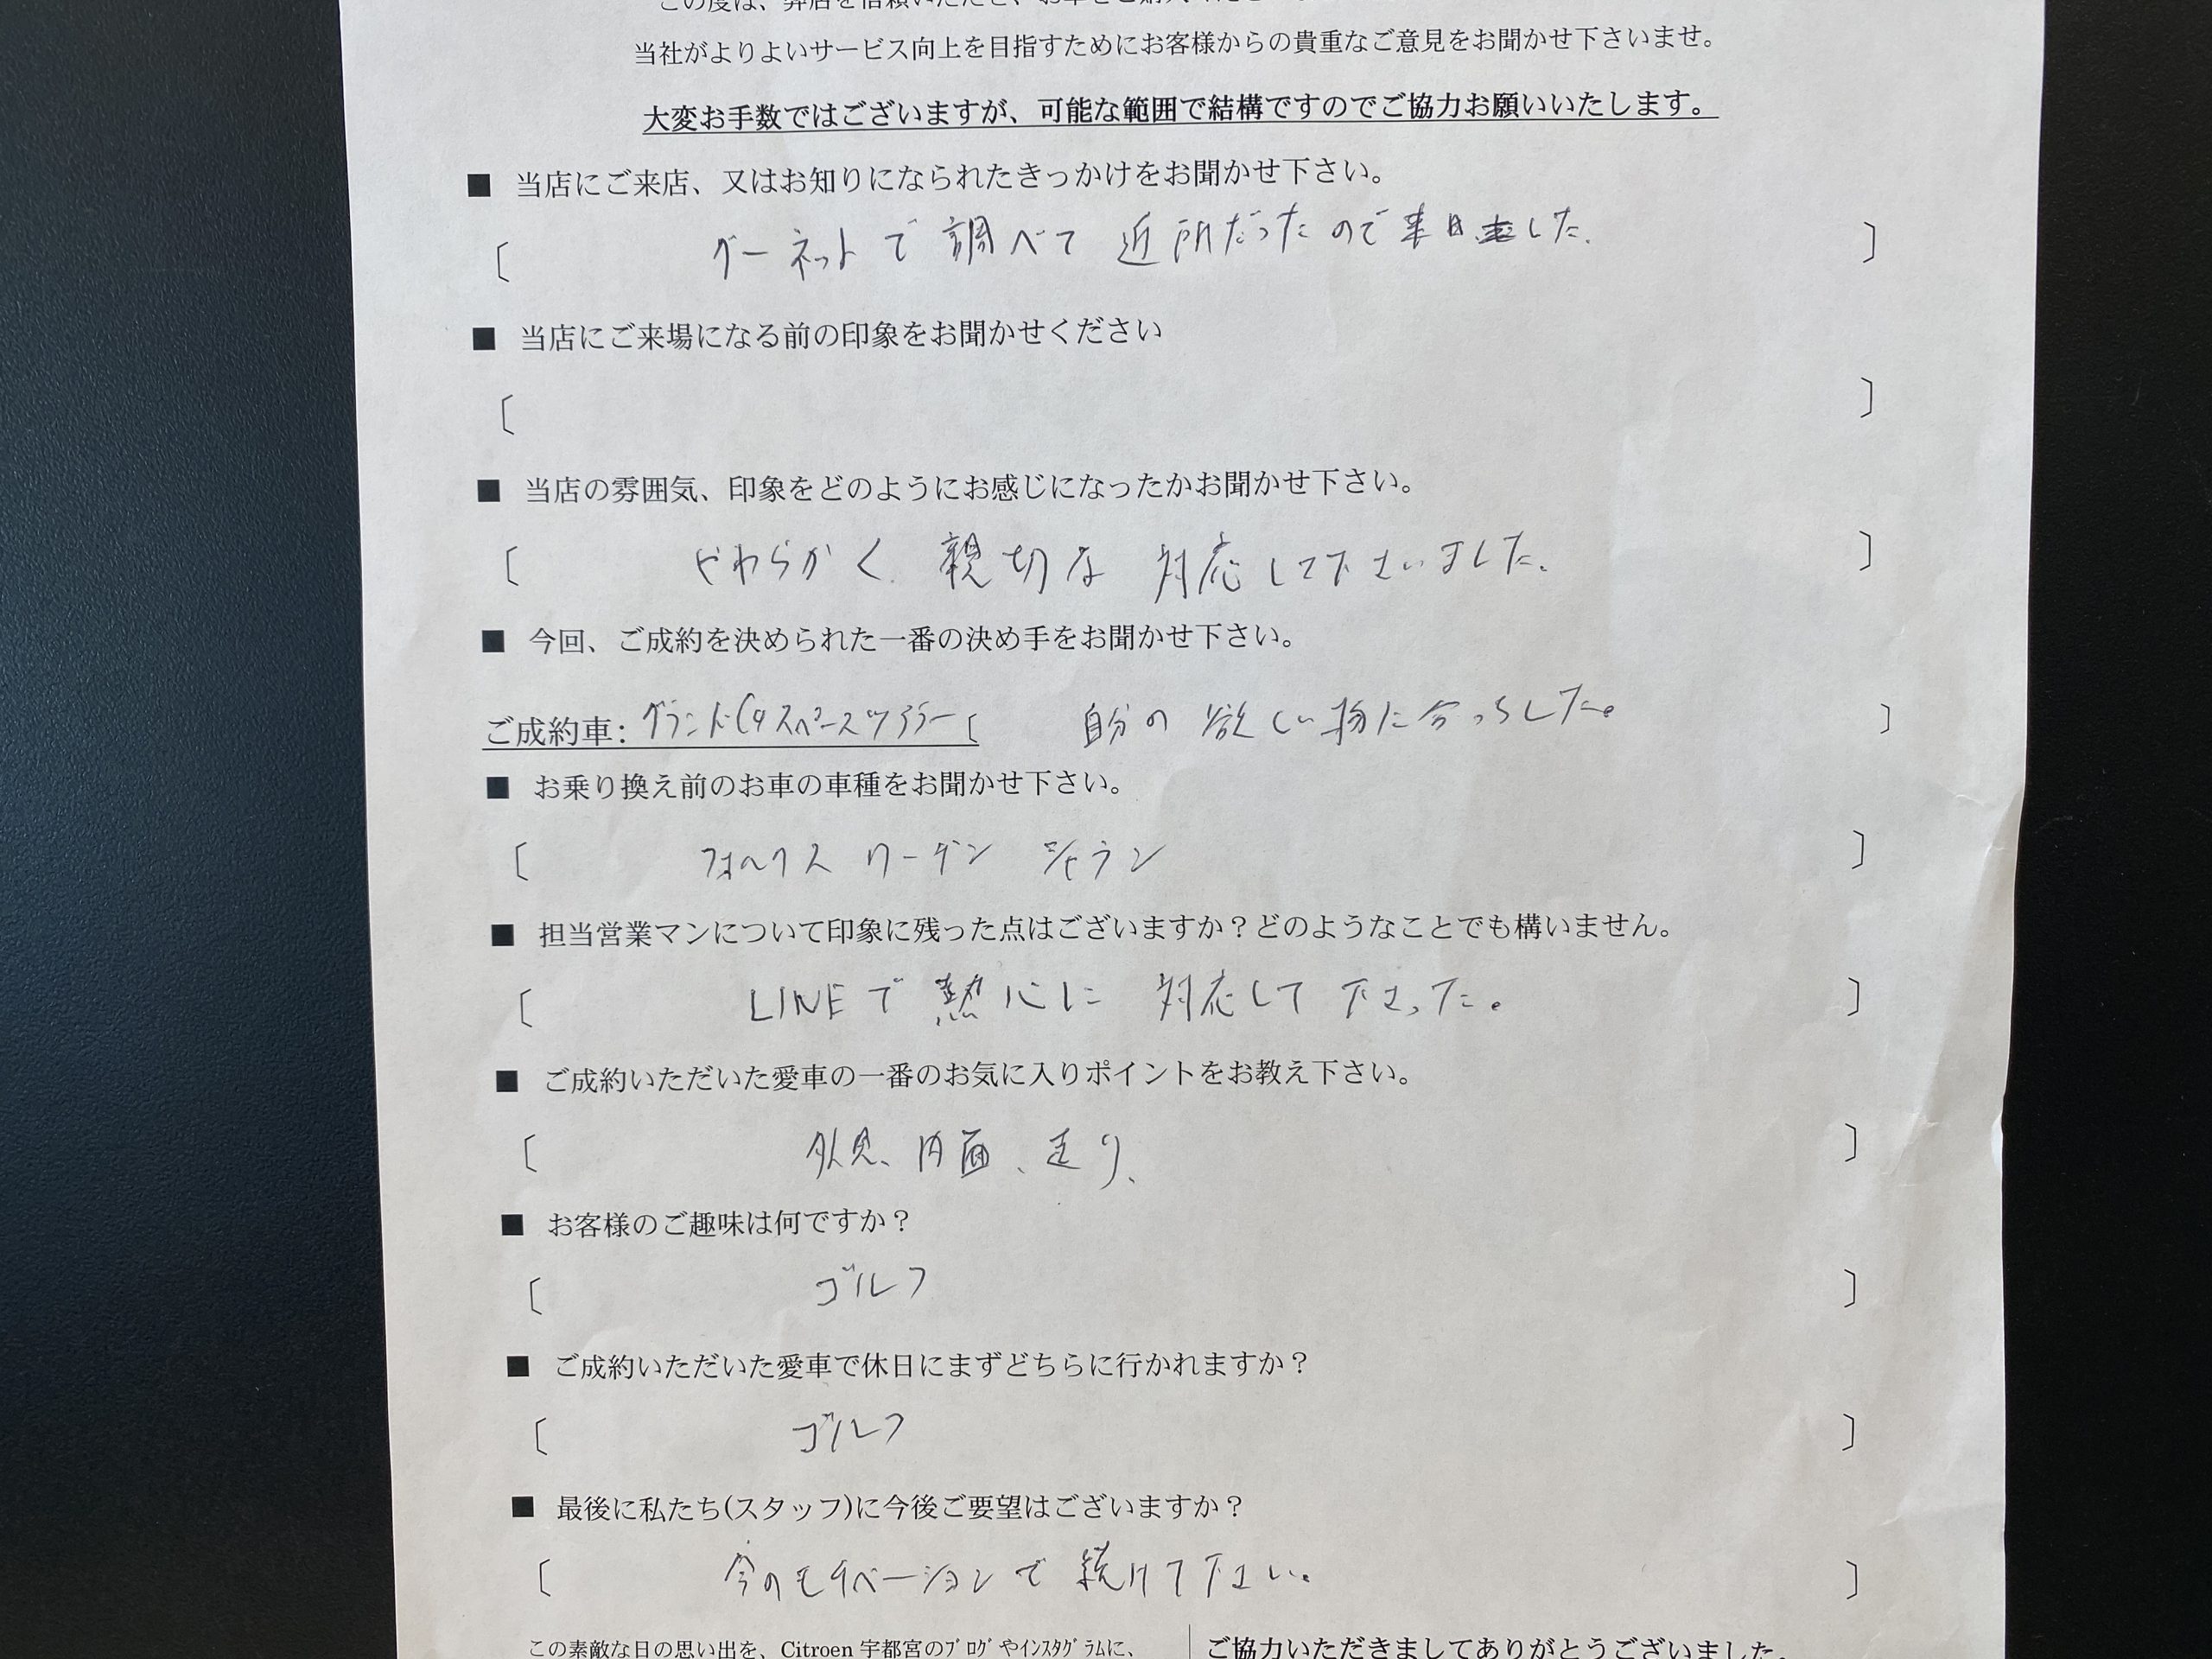 この度は、弊店を信頼いただき、お車をご購入
当社がよりよいサービス向上を目指すためにお客様からの貴重なご意見をお聞かせ下さいませ。
大変お手数ではございますが、可能な範囲で結構ですのでご協力お願いいたします。
■ 当店にご来店、又はお知りになられたきっかけをお聞かせ下さい。
〔 グーネットで調べて近所だったので来店ました。 〕
■ 当店にご来場になる前の印象をお聞かせください
〔 〕
■ 当店の雰囲気、印象をどのようにお感じになったかお聞かせ下さい。
〔 やわらかく、親切な対応して下さいました。 〕
■ 今回、ご成約を決められた一番の決め手をお聞かせ下さい。
ご成約車: グランドC4スペースツアラー 〔 自分の欲しい物に合っ した。 〕
■ お乗り換え前のお車の車種をお聞かせ下さい。
〔 フォルクスワーゲン シャラン 〕
■ 担当営業マンについて印象に残った点はございますか？どのようなことでも構いません。
〔 LINEで熱心に対応して下さった。 〕
■ ご成約いただいた愛車の一番のお気に入りポイントをお教え下さい。
〔 外見、内面、走り、 〕
■ お客様のご趣味は何ですか？
〔 ゴルフ 〕
■ ご成約いただいた愛車で休日にまずどちらに行かれますか？
〔 ゴルフ 〕
■ 最後に私たち(スタッフ)に今後ご要望はございますか？
〔 今のモチベーションで続けて下さい。 〕
この素敵な日の思い出を、Citroen 宇都宮のﾌﾞﾛｸﾞやｲﾝｽﾀｸﾞﾗﾑに、
ご協力いただきましてありがとうございました。